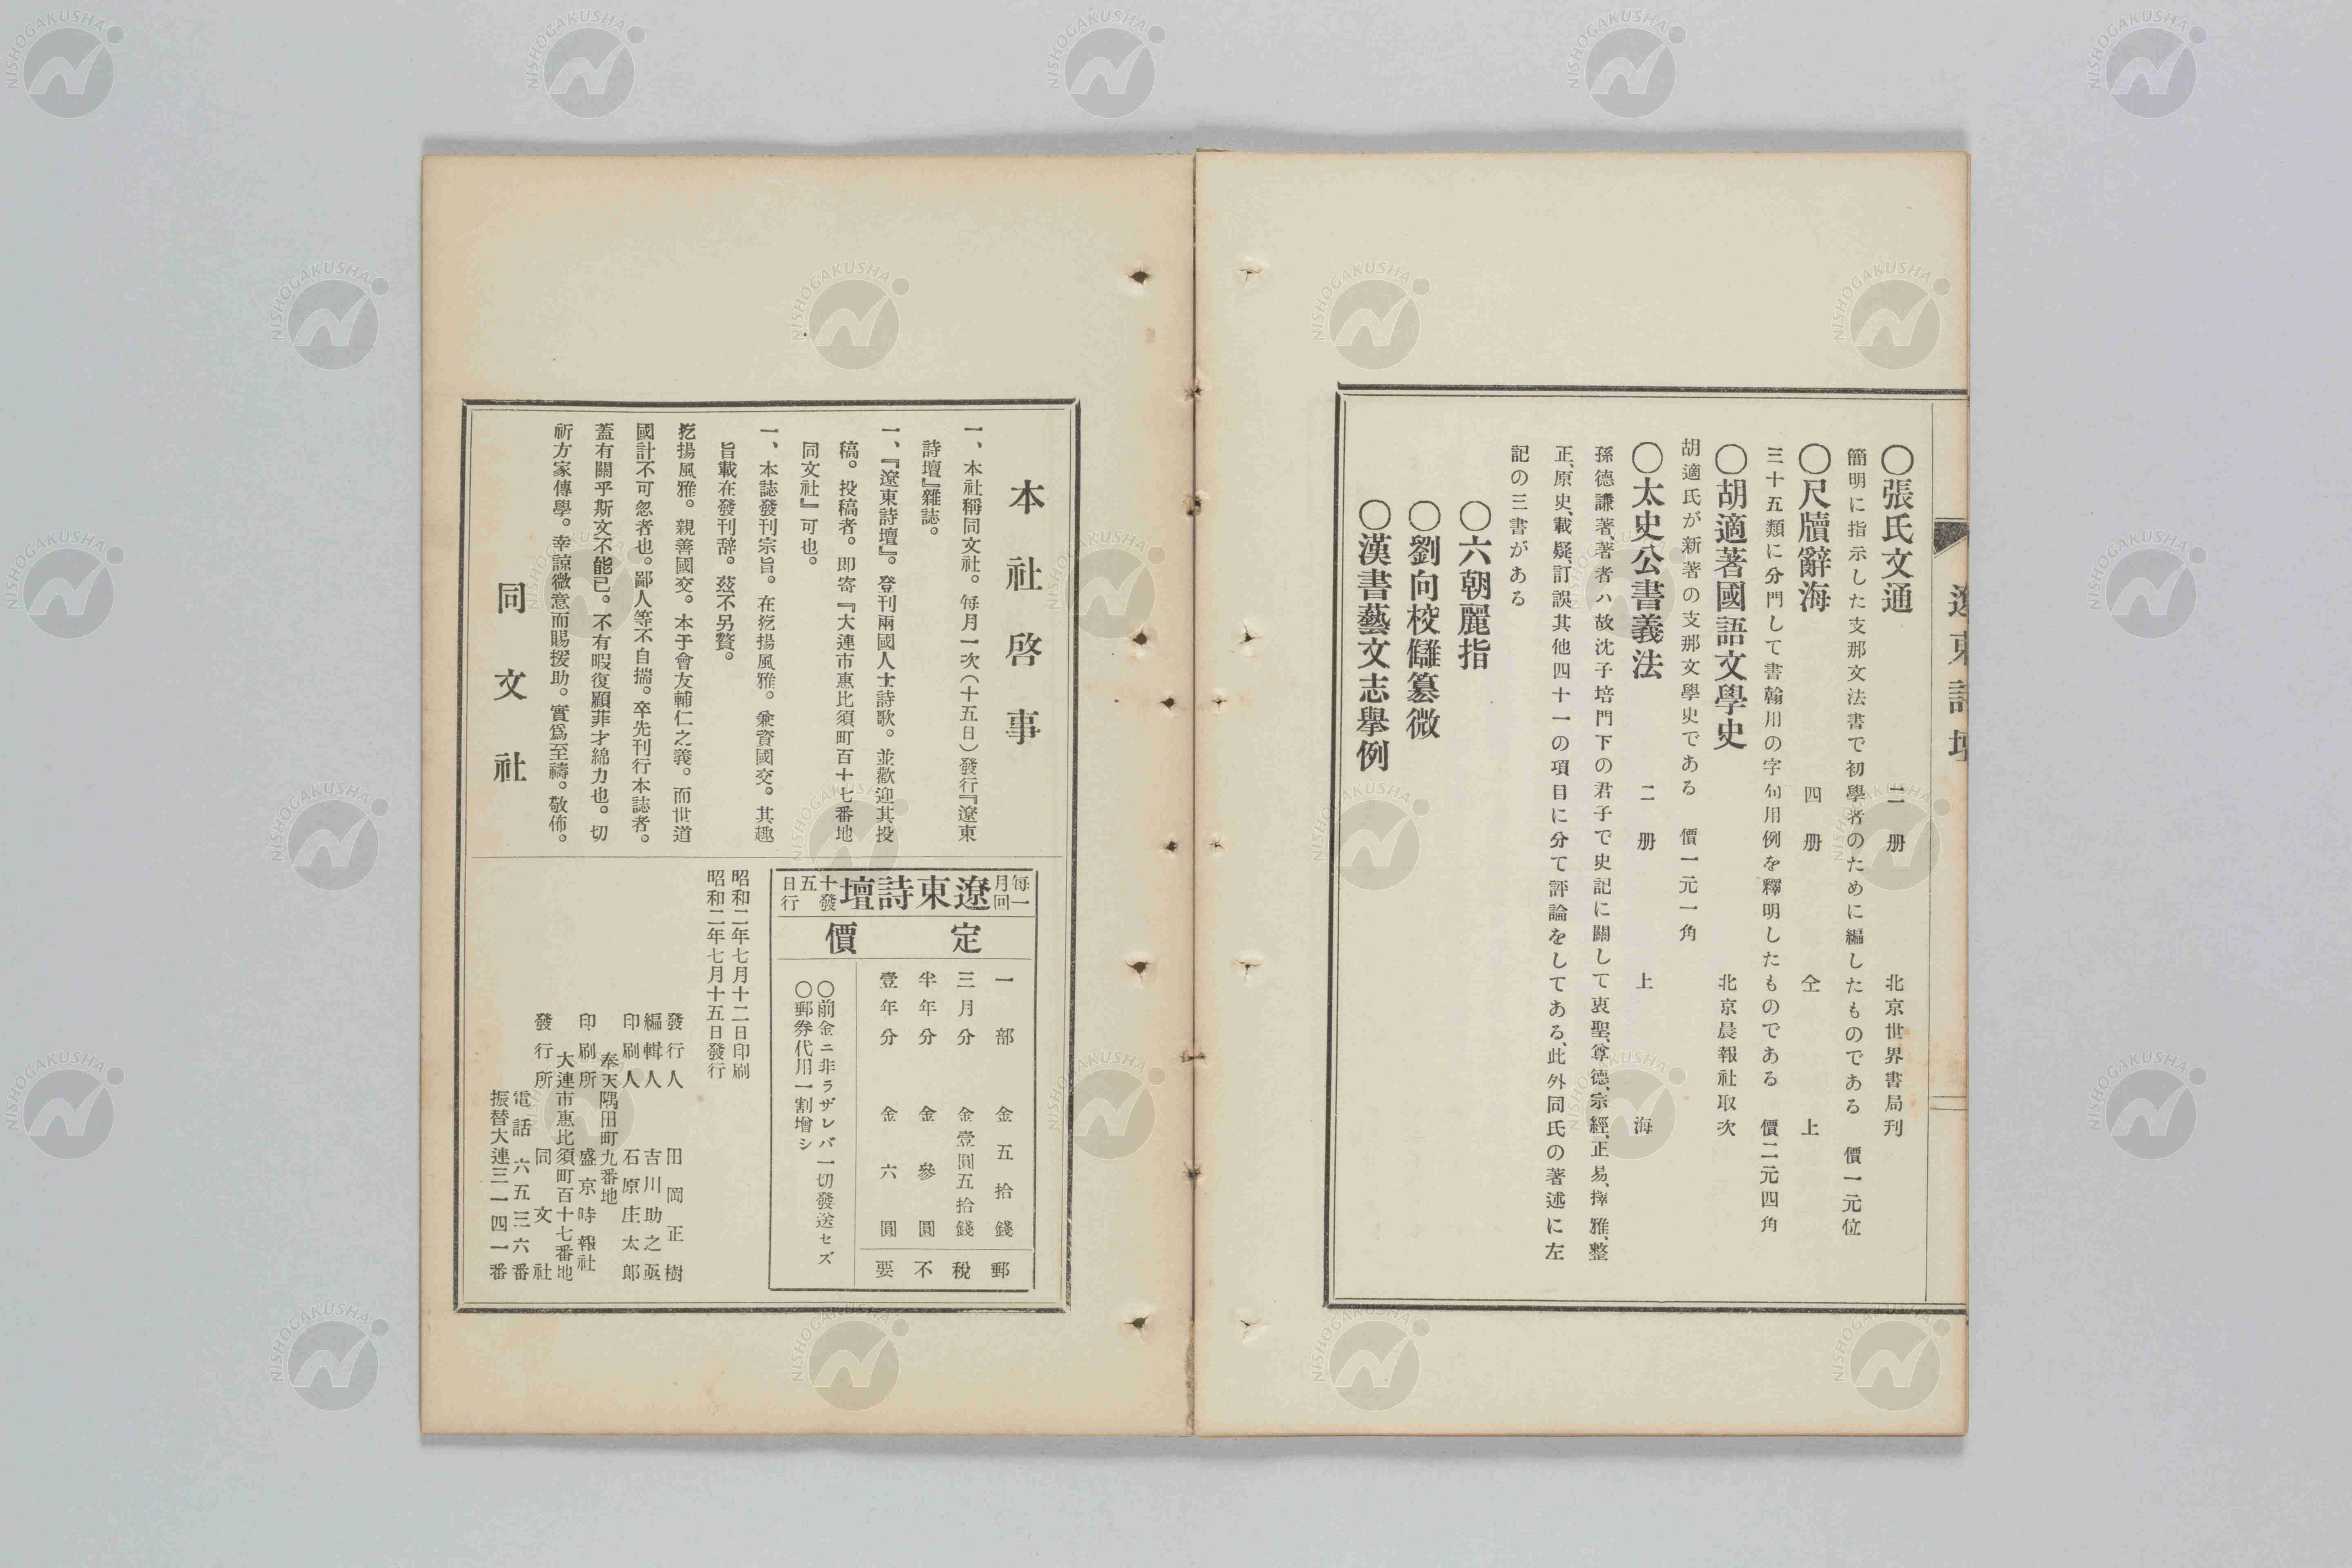 遼東詩壇
○張氏文通　二册　北京世界書局刊
簡明に指示した支那文法書で初學者のために編したものである　價一元位
○尺牘辭海　四册　仝上
三十五類に分門して書翰用の字句用例を釋明したものである　價二元四角
○胡適著國語文學史　北京晨報社取次
胡適氏が新著の支那文學史である　價一元一角
○太史公書義法　二册　上海
孫德謙著、著者ハ故沈子培門下の君子で史記に關して衷聖、尊德、宗經、正易、擇雅、整
正、原史、載疑、訂誤其他四十一の項目に分て評論をしてある、此外同氏の著述に左
記の三書がある
○六朝麗指
○劉向校讎纂微
○漢書藝文志擧例
本社啓事
一、本社稱同文社。每月一次（十五日）發行『遼東
詩壇』雜誌。
一、『遼東詩壇』。登刊兩國人士詩歌。並歡迎其投
稿。投稿者。即寄『大連市惠比須町百十七番地
同文社』可也。
一、本誌發刊宗旨。在挖揚風雅。兼資國交。其趣
旨載在發刊辞。茲不另贅。
挖揚風雅。親善國交。本于會友輔仁之義。而世道
國計不可忽者也。鄙人等不自揣。卒先刊行本誌者。
蓋有關乎斯文不能已。不有暇復顧菲才綿力也。切
祈方家傳學。幸諒微意而賜援助。實爲至禱。敬佈。
同文社
每月一回　遼東詩壇　十五日發行
定價
一部　金五拾錢　郵
三月分　金壹圓五拾錢　稅
半年分　金參圓　不
壹年分　金六圓　要
○前金ニ非ラザレバ一切發送セズ
○郵券代用一割增シ
昭和二年七月十二日印刷
昭和二年七月十五日發行
發行人　田岡正樹
編輯人　吉川助之亟
印刷人　石原庄太郎
奉天隅田町九番地
印刷所　盛京時報社
大連市惠比須町百十七番地
發行所　同文社
電話　六五三六番
振替大連三一四一番
NISHOGAKUSHA